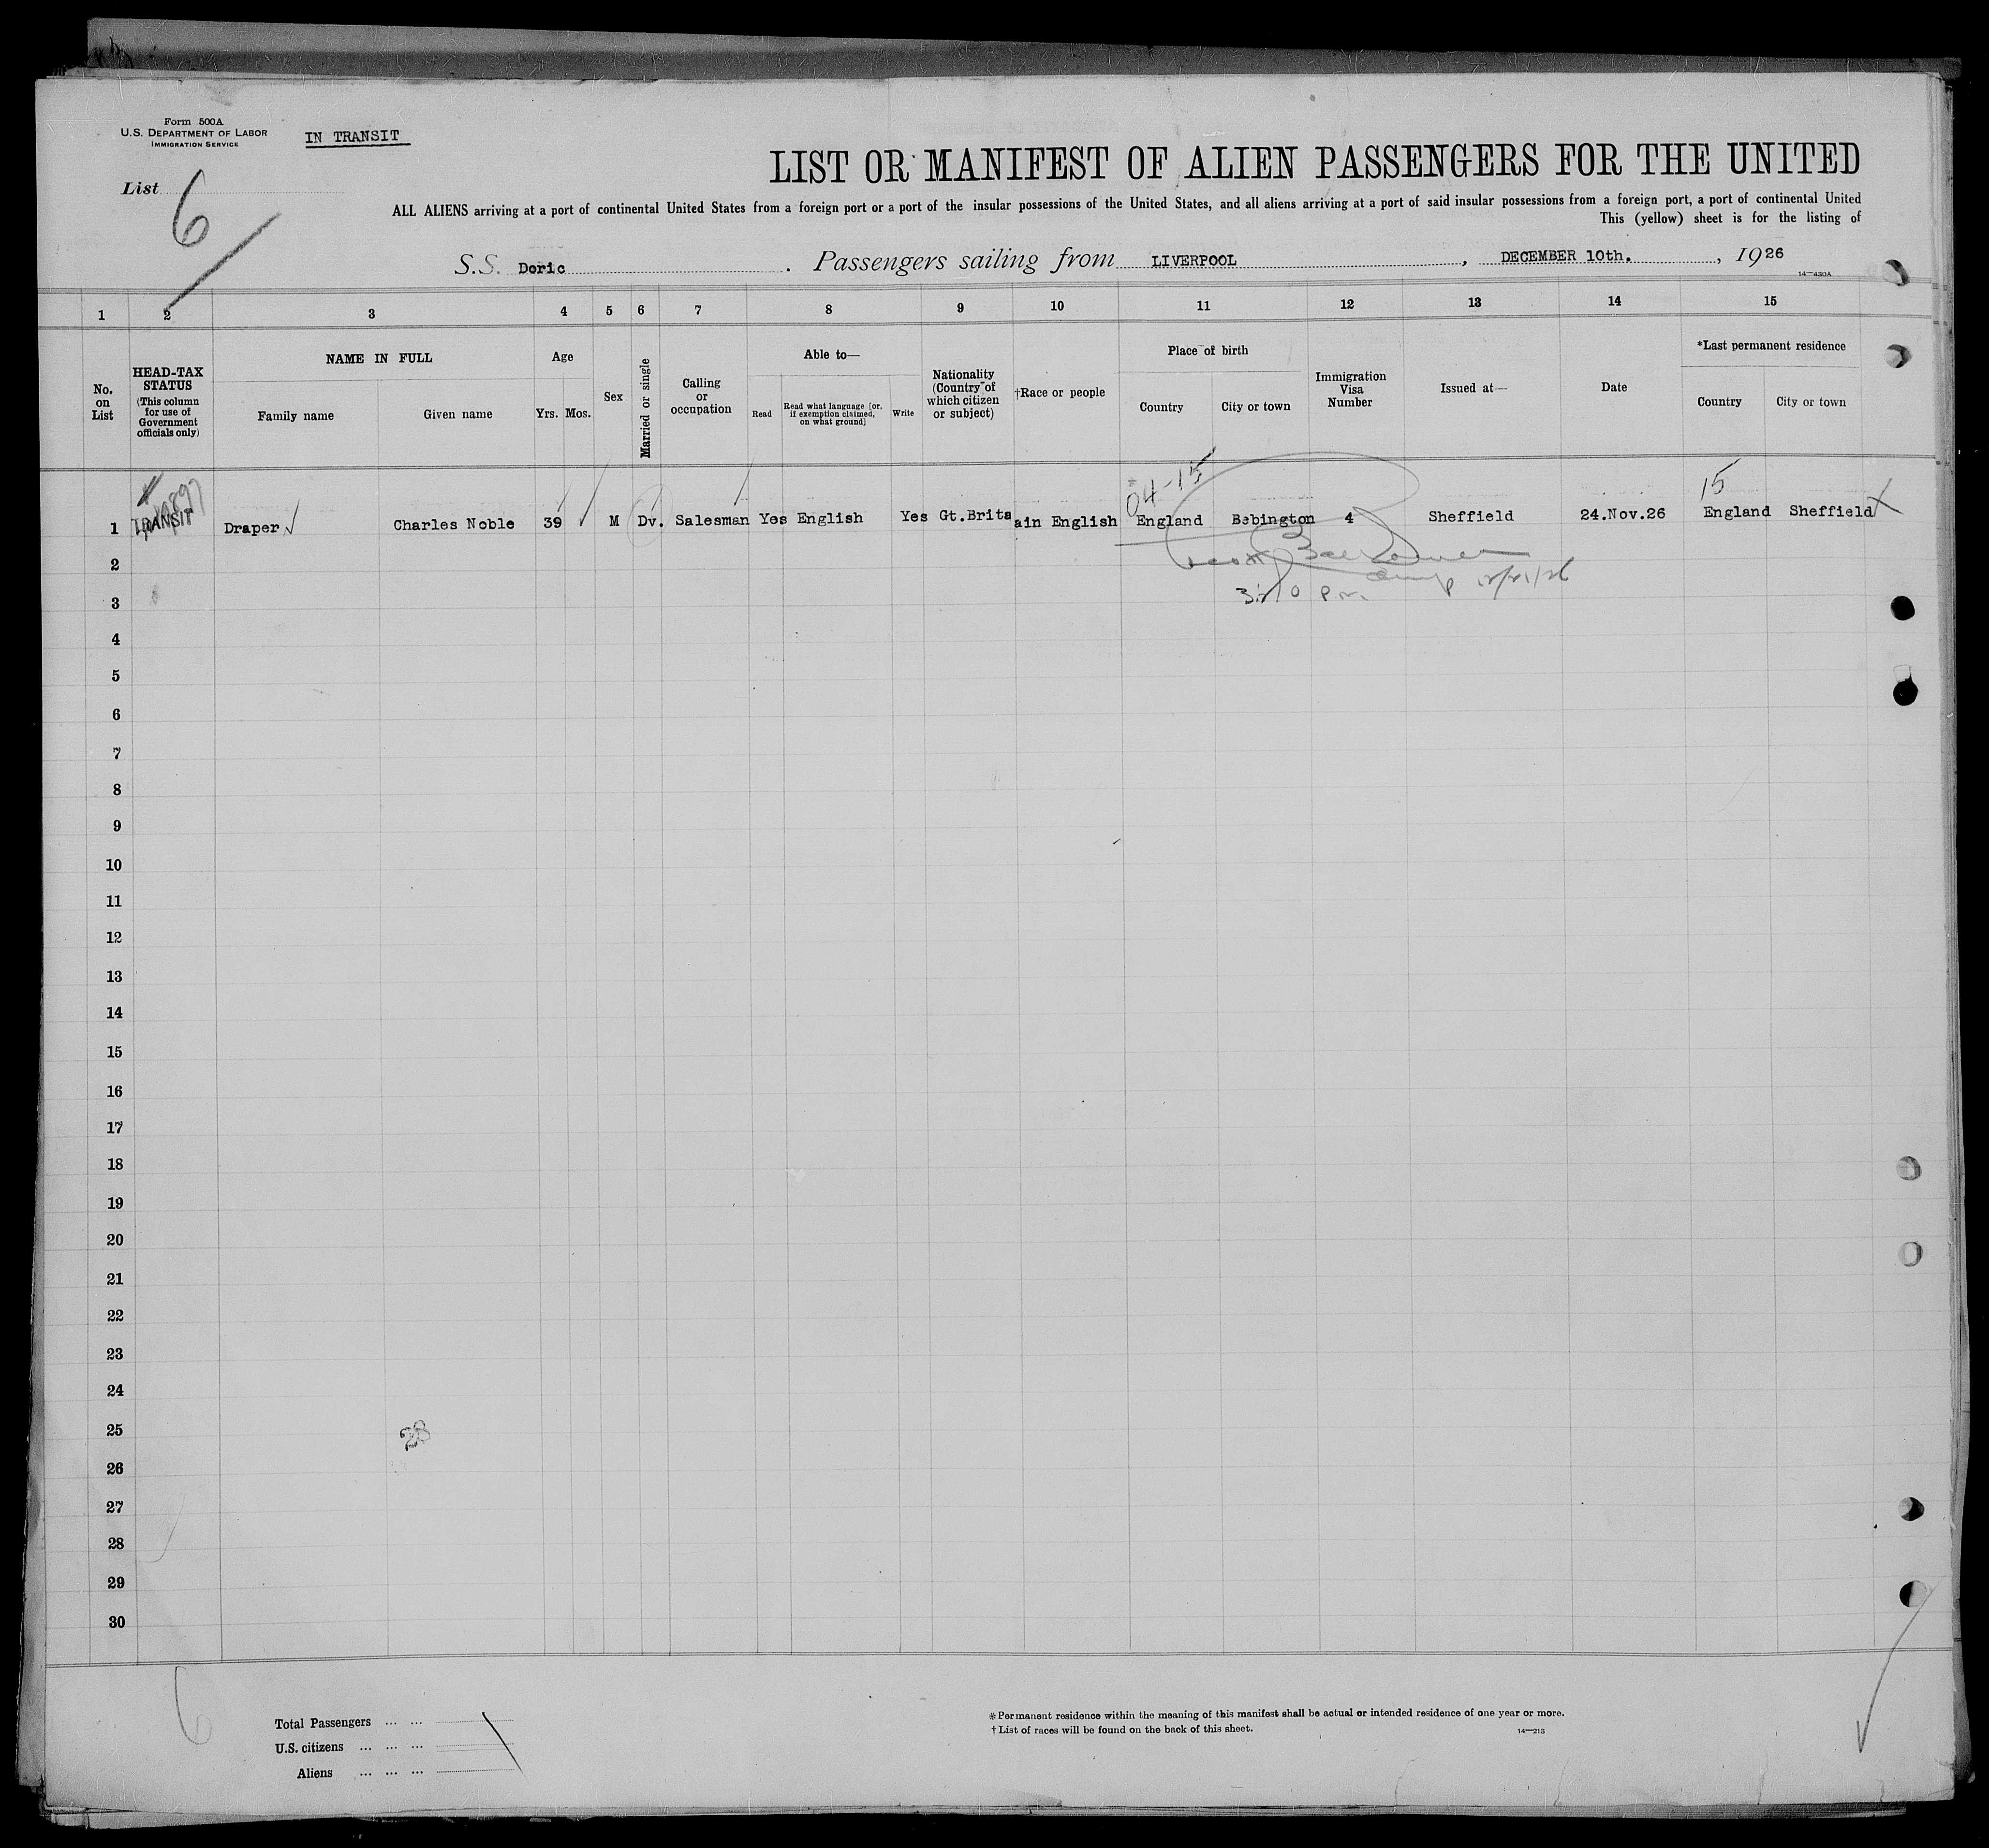 Form 500A
U.S. DEPARTMENT OF LABOR
IMMIGRATION SERVICE
IN TRANSIT
List 6
LIST OR MANIFEST OF ALIEN PASSENGERS FOR THE UNITED
ALL ALIENS arriving at a port of continental United States from a foreign port or a port of the insular possessions of the United States, and all aliens arriving at a port of said insular possessions from a foreign port, a port of continental United
This (yellow) sheet is for the listing of
S.S. Doric. Passengers sailing from LIVERPOOL, DECEMBER 10th., 1926
14—430A
1 2 3 4 5 6 7 8 9 10 11 12 13 14 15
No. on List
HEAD-TAX STATUS (This column for use of Government officials only)
NAME IN FULL
Family name Given name
Age
Yrs. Mos.
Sex
Married or single
Calling or occupation
Able to—
Read Read what language [or, if exemption claimed, on what ground] Write
Nationality (Country of which citizen or subject)
†Race or people
Place of birth
Country City or town
Immigration Visa Number
Issued at—
Date
*Last permanent residence
Country City or town
04-15 15
1 TRANSIT Draper Charles Noble 39 M Dv. Salesman Yes English Yes Gt.Brita ain English England Bebington 4 Sheffield 24.Nov.26 England Sheffield
2
3 3:10 P.m. 12/21/26
4
5
6
7
8
9
10
11
12
13
14
15
16
17
18
19
20
21
22
23
24
25 28
26
27
28
29
30
6
Total Passengers ... ...
U.S. citizens ... ... ...
Aliens ... ... ...
*Permanent residence within the meaning of this manifest shall be actual or intended residence of one year or more.
†List of races will be found on the back of this sheet.
14—213